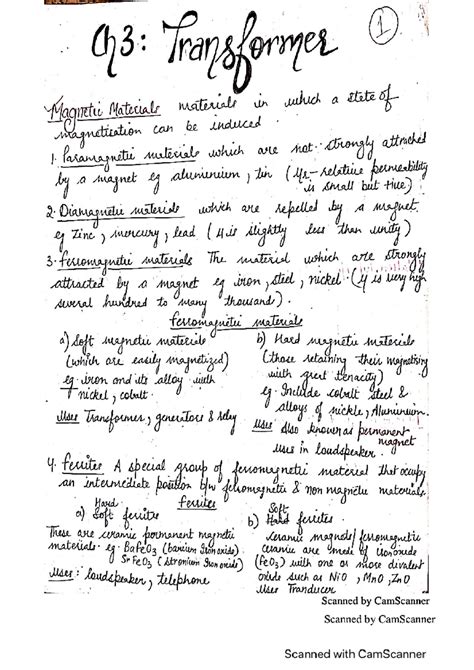 Ch 3: Transformer
1
Magnetic Materials materials in which a state of
magnetization can be induced.
1. Paramagnetic materials which are not strongly attracted
by a magnet eg aluminium, tin (μr - relative permeability
is small but +ive)
2. Diamagnetic materials which are repelled by a magnet
eg Zinc, mercury, lead (μ is slightly less than unity)
3. ferromagnetic materials The material which are strongly
attracted by a magnet eg iron, steel, nickel (μ is very high
several hundred to many thousand).
ferromagnetic materials
a) Soft magnetic materials
(which are easily magnetized)
eg. iron and its alloy with
nickel, cobalt.
Uses Transformer, generators & relay
b) Hard magnetic materials
(those retaining their magnetising
with great tenacity)
eg. Include cobalt steel &
alloys of nickle, Aluminium.
Uses also known as permanent
magnet
Uses in loudspeaker.
4. ferrites A special group of ferromagnetic material that occupy
an intermediate position b/w ferromagnetic & non magnetic materials.
ferrites
Hard
a) Soft ferrites
These are ceramic permanent magnetic
materials. eg. BaFeO3 (barium Iron oxide)
SrFeO3 (strontium Iron oxide)
Uses: loudspeaker, telephone
Soft
b) Hard ferrites
ceramic magnets/ ferromagnetic
ceramic are made of iron oxide
(FeO3) with one or more divalent
oxide such as NiO, MnO, ZnO
Uses Tranducer
Scanned by CamScanner
Scanned by CamScanner
Scanned with CamScanner